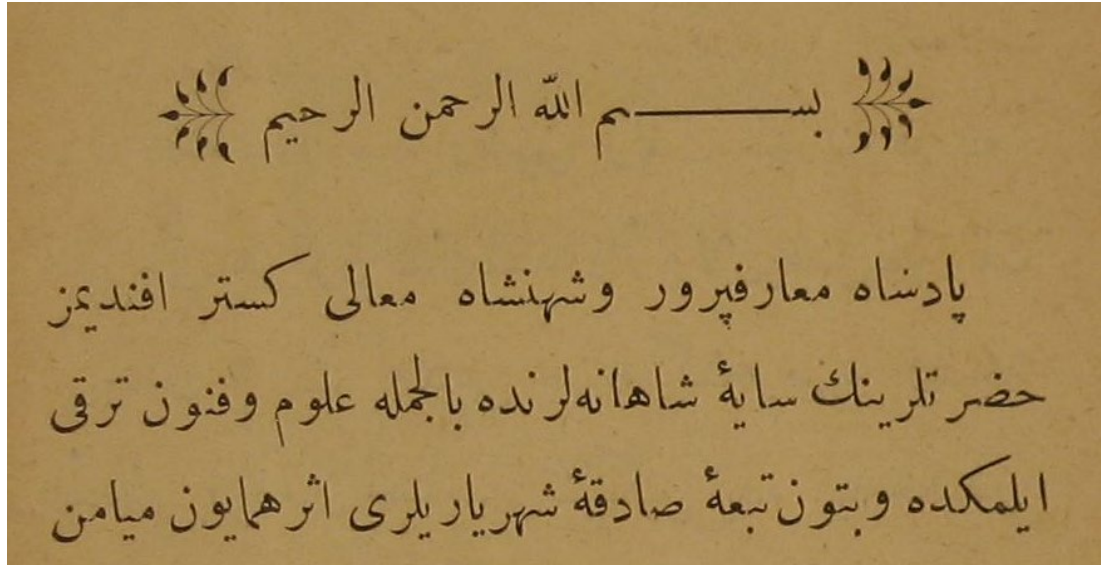 بســــــم الله الرحمن الرحيم
پادشاه معارفپرور وشهنشاه معالی كستر افنديمز
حضرتلرينك سايۀ شاهانه‌لرنده بالجمله علوم وفنون ترقی
ايلمكده وبتون تبعۀ صادقۀ شهرياريلری اثر همايون ميامن